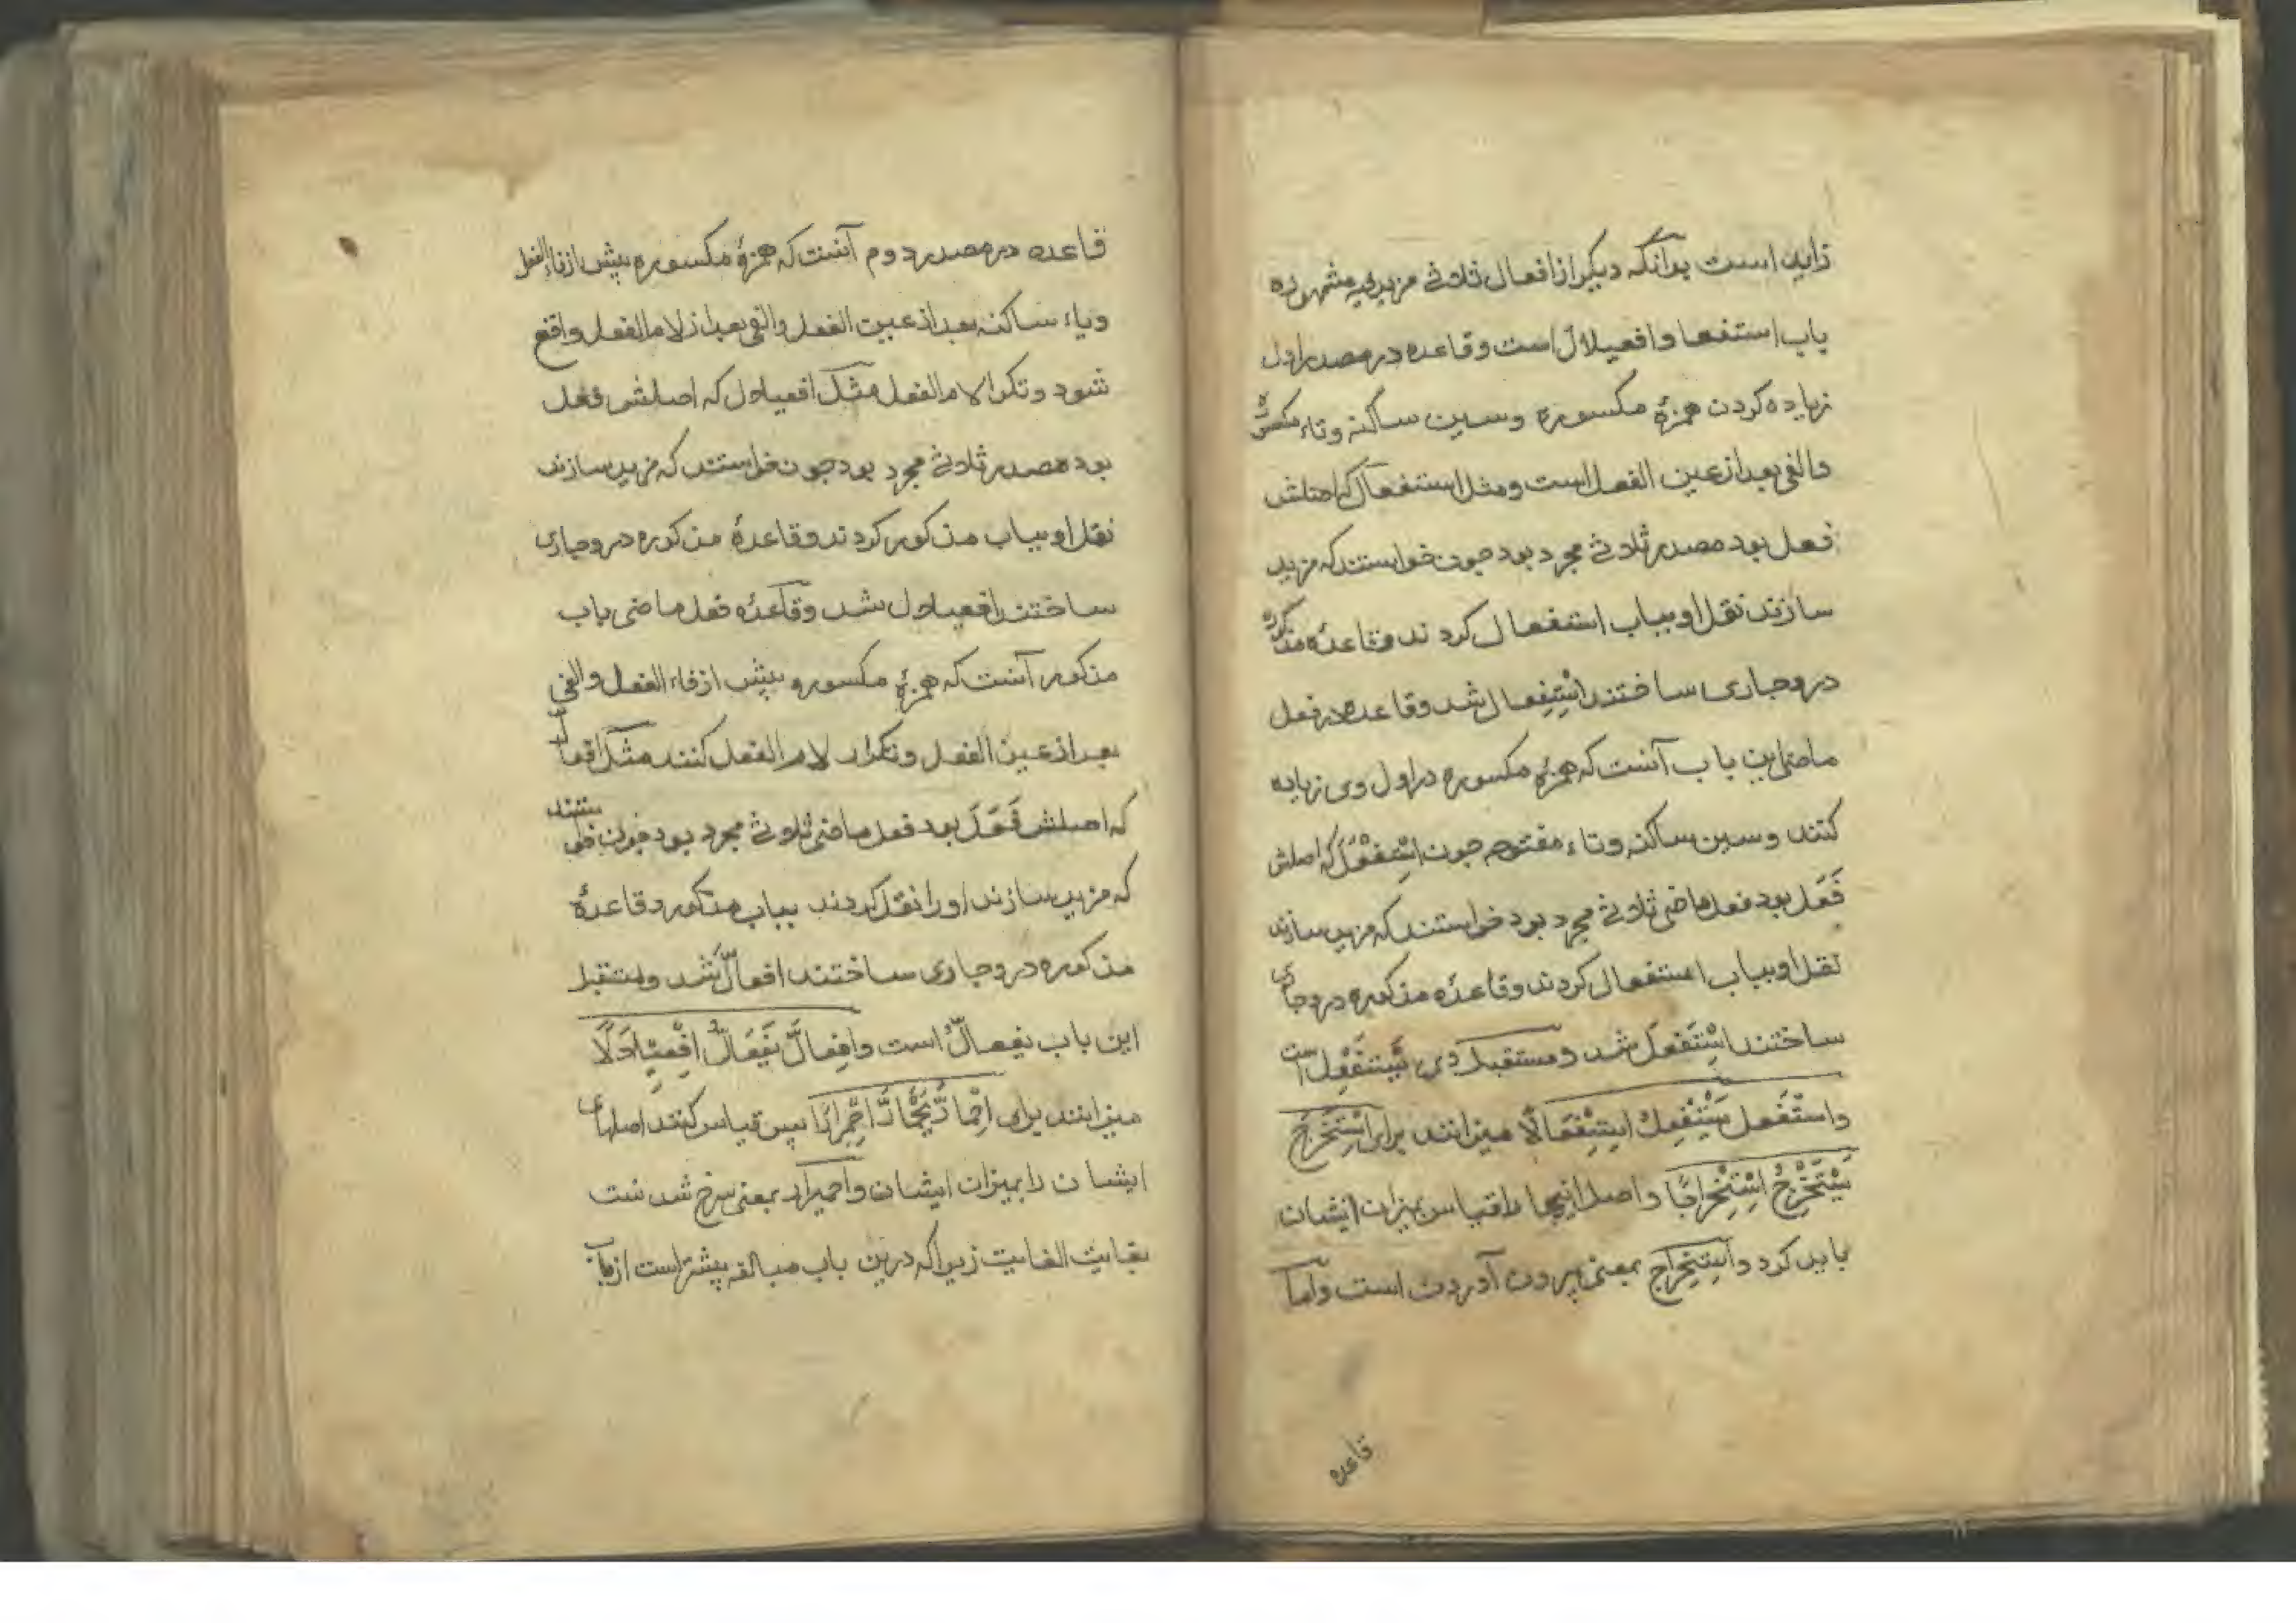 زاید است بدانکه دیگر از افعال ثلاثی مزید فیه مشهوره
باب استفعا و افعیلال است و قاعده در مصدر اول
زیاده کردن همزهٔ مکسوره و سین ساکنه و تاء مکسوره
و الفی بعد از عین الفعل است و مثل استفعال که اصلش
فعل بود مصدر ثلاثی مجرد بود چون خواستند که مزید
سازند نقل او بباب استفعال کردند و قاعدهٔ مذکوره
در و جاری ساختند اسْتِفعال شد و قاعده در فعل
ماضی این باب آنست که همزهٔ مکسوره در اول وی زیاده
کنند و سین ساکنه و تاء مفتوحه چون اسْتَفْعَلَ که اصلش
فَعَل بود فعل ماضی ثلاثی مجرد بود خواستند که مزید سازند
نقل او بباب استفعال کردند و قاعدهٔ مذکوره در و جاری
ساختند اسْتَفعَلَ شد و مستقبل وی یَسْتَفْعِل است
واستَفْعل یَسْتَفْعِلُ اسْتِفْعَالًا میزانند برای اسْتَخْرَجَ
یَسْتَخْرِجُ اسْتِخْرَاجًا و اصل اینها را قیاس بمیزان ایشان
باید کرد و اسْتِخراج بمعنی بیرون آوردن است و اما
قاعده
قاعده در مصدر دوم آنست که همزهٔ مکسوره پیش از فاء الفعل
و یاء ساکنه بعد از عین الفعل و الفی بعد از لام الفعل واقع
شود و تکرا لام الفعل مثل افعیلال که اصلش فعل
بود مصدر ثلاثی مجرد بود چون خواستند که مزید سازند
نقل او بباب مذکور کردند و قاعدهٔ مذکوره در و جاری
ساختند افعیلال شد و قاعدهٔ فعل ماضی باب
مذکور آنست که همزهٔ مکسوره پیش از فاء الفعل و الفی
بعد از عین الفعل و تکرار لام الفعل کنند مثل افعالّ
که اصلش فَعَلَ بود فعل ماضی ثلاثی مجرد بود چون خواستند
که مزید سازند او را نقل کردند بباب مذکور و قاعدهٔ
مذکوره در و جاری ساختند افعالّ شد و مستقبل
این باب یفعالّ است و افعالَّ یَفْعَالُّ افْعِیْلَالًا
میزانند برای احْمَارَّ یَحْمَارُّ احْمِیرَارًا پس قیاس کنند اصلهای
ایشان را بمیزان ایشان و احمیرار بمعنی سرخ شدنست
بغایت الغایت زیرا که درین باب مبالغه پیشتر است از باب